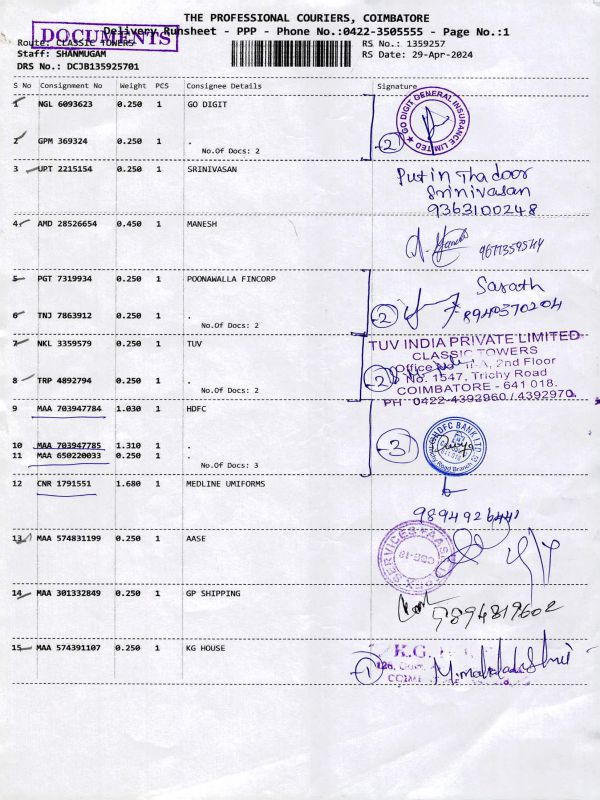 THE PROFESSIONAL COURIERS, COIMBATORE
Delivery Runsheet - PPP - Phone No.:0422-3505555 - Page No.:1
DOCUMENTS
Route: CLASSIC TOWERS
RS No.: 1359257
Staff: SHANMUGAM
RS Date: 29-Apr-2024
DRS No.: DCJB135925701
S No Consignment No Weight PCS Consignee Details Signature
1 NGL 6093623 0.250 1 GO DIGIT
GO DIGIT GENERAL INSURANCE LIMITED
2 GPM 369324 0.250 1 .
2
No.Of Docs: 2
3 UPT 2215154 0.250 1 SRINIVASAN
Srinivasan
9363100248
4 AMD 28526654 0.450 1 MANESH
5 PGT 7319934 0.250 1 POONAWALLA FINCORP
Sarath
6 TNJ 7863912 0.250 1 .
2
No.Of Docs: 2
7 NKL 3359579 0.250 1 TUV
TUV INDIA PRIVATE LIMITED
CLASSIC TOWERS
2nd Floor
8 TRP 4892794 0.250 1 .
2
No. 1547, Trichy Road
COIMBATORE - 641 018.
No.Of Docs: 2
PH 0422-4392960 / 4392970
9 MAA 703947784 1.030 1 HDFC
HDFC BANK LTD
10 MAA 703947785 1.310 1
3
11 MAA 650220033 0.250 1 .
No.Of Docs: 3
12 CNR 1791551 1.680 1 MEDLINE UMIFORMS
13 MAA 574831199 0.250 1 AASE
14 MAA 301332849 0.250 1 GP SHIPPING
9894819602
15 MAA 574391107 0.250 1 KG HOUSE
K.G.
1